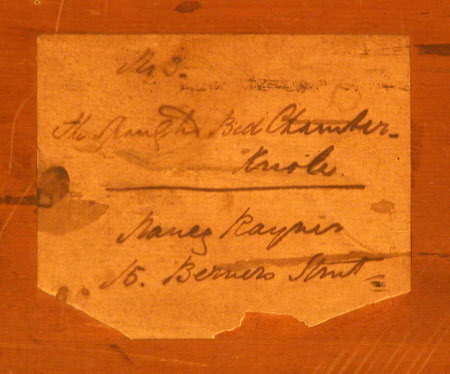 No 3.
The Spangled Bed Chamber -
Knole.
Nancy Rayner
15. Berners Street